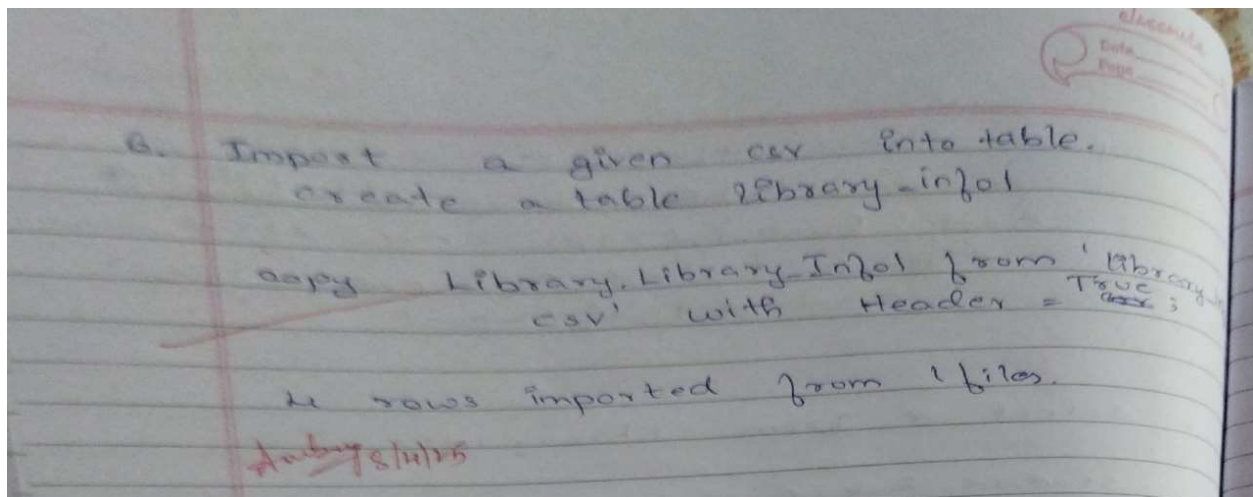 classmate
Date
Page
6. Import a given csv into table.
create a table library-info1
copy Library.Library_Info1 from 'library.
csv' with Header = True ;
4 rows imported from 1 files.
8/4/25